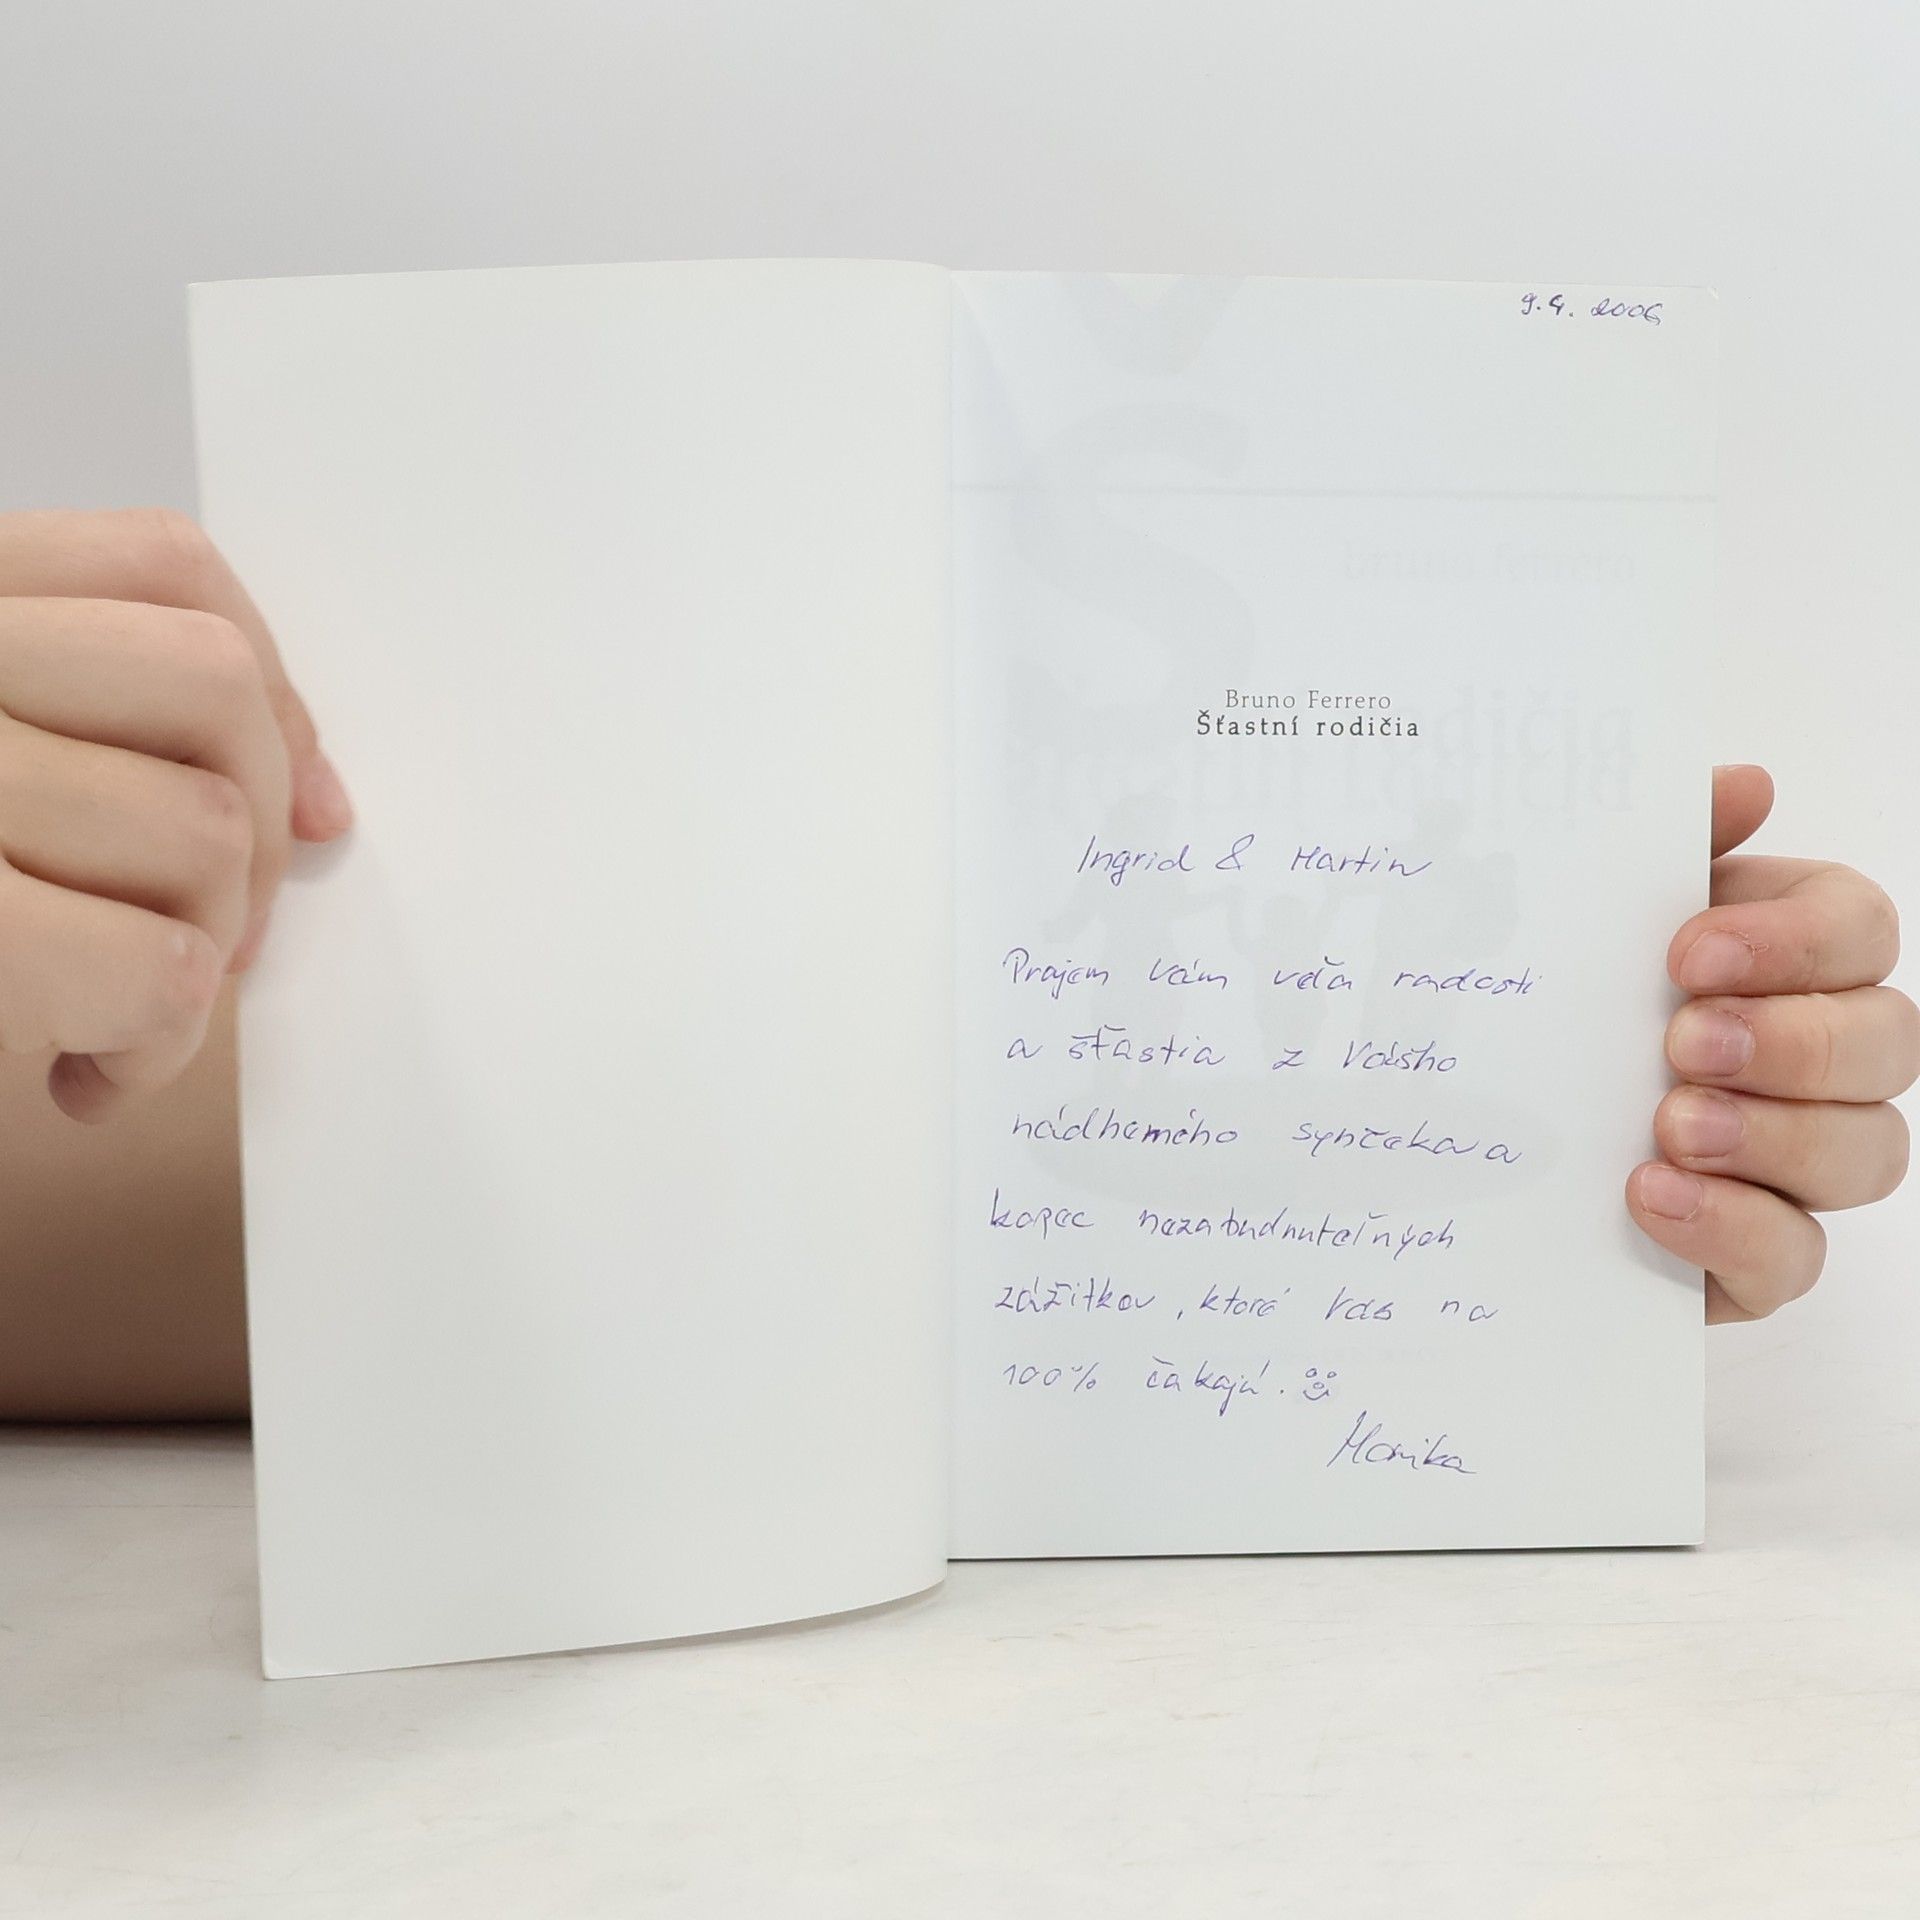 9.4. 2006
Bruno Ferrero
Šťastní rodičia
Ingrid & Martin
Prajem Vám veľa radosti
a šťastia z Vášho
nádherného synčeka a
kopec nezabudnuteľných
zážitkov, ktoré Vás na
100% čakajú.
Monika